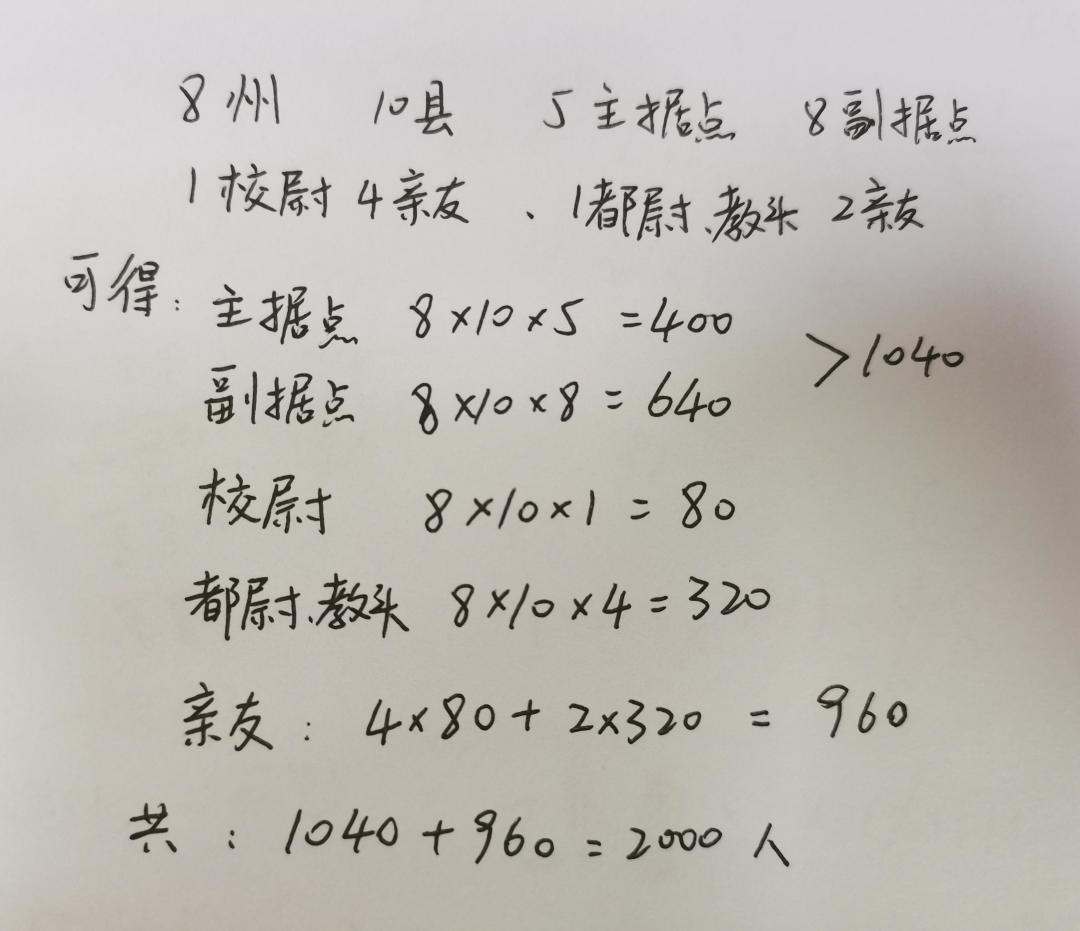 8州 10县 5主据点 8副据点
1校尉4亲友、1都尉、教头 2亲友
可得：主据点 8×10×5=400
>1040
副据点 8×10×8=640
校尉 8×10×1=80
都尉、教头 8×10×4=320
亲友：4×80+2×320=960
共：1040+960=2000人